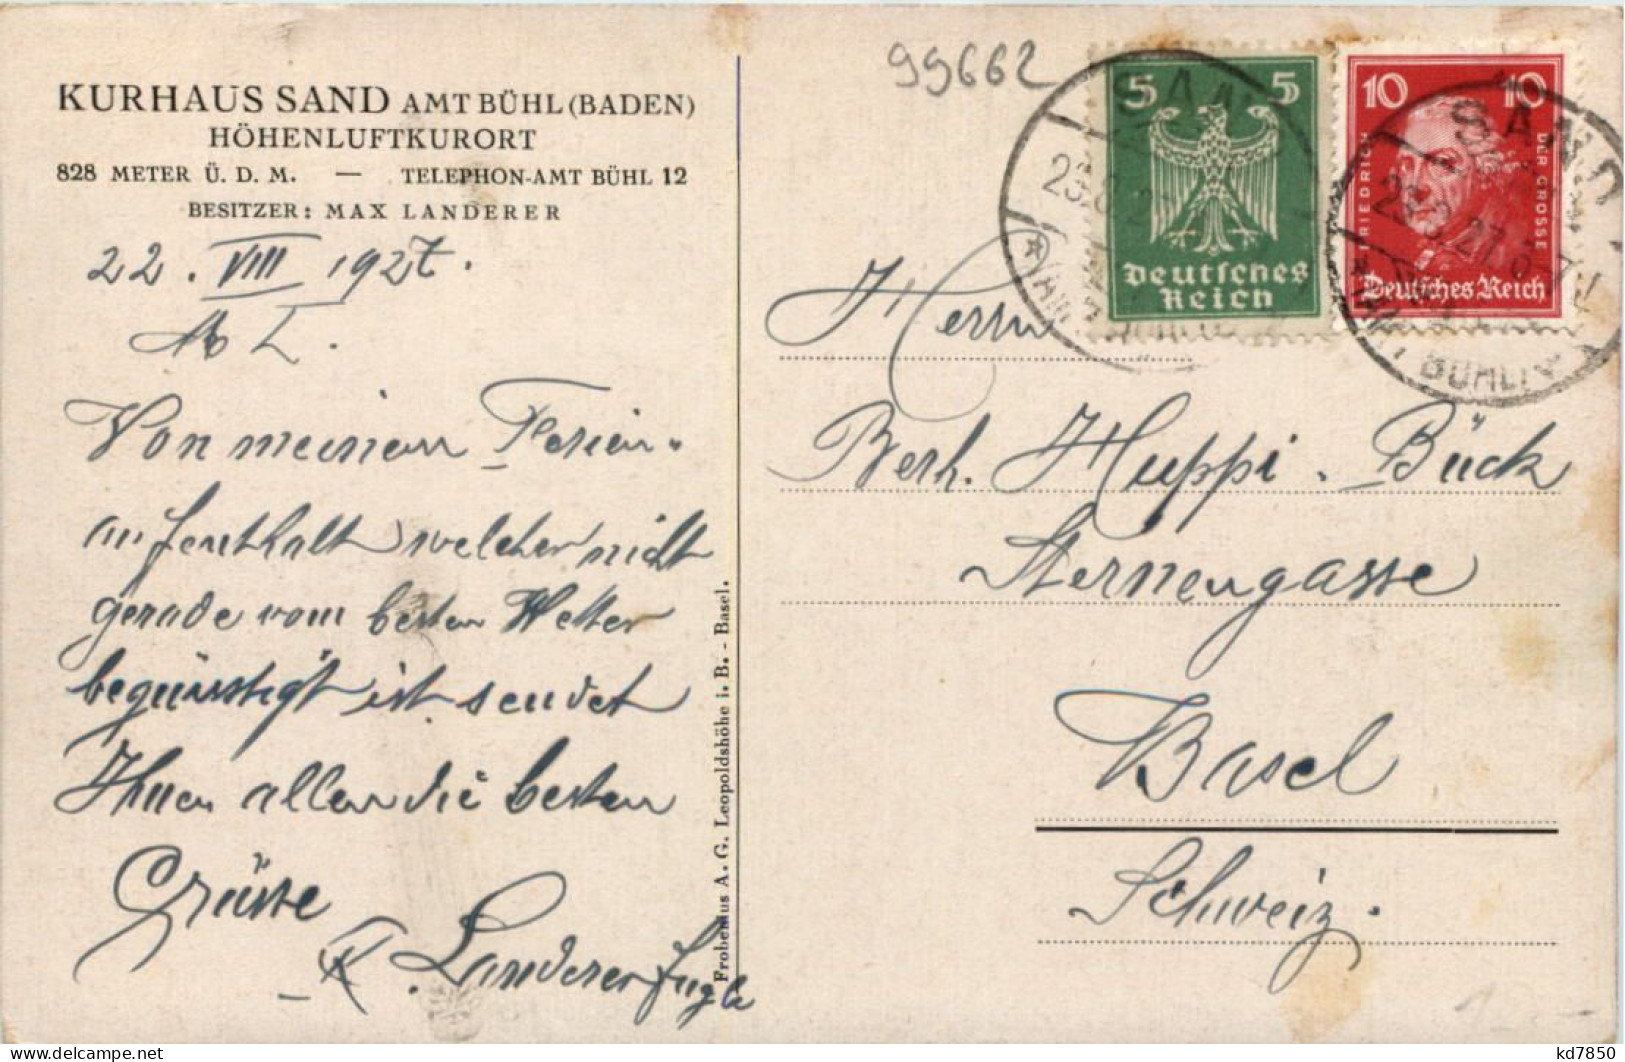 KURHAUS SAND AMT BÜHL (BADEN)
HÖHENLUFTKURORT
828 METER Ü. D. M. — TELEPHON-AMT BÜHL 12
BESITZER: MAX LANDERER
22. VIII 1927.
M L.
Von meinem Ferien-
aufenthalt welcher nicht
gerade vom besten Wetter
begünstigt ist sendet
Ihnen allen die besten
Grüsse
Landerer
Frobenius A. G. Leopoldshöhe i. B. - Basel.
99662
5 5
Deutsches
Reich
10 10
FRIEDRICH
DER GROSSE
Deutsches Reich
SAND
SAND
23.8.27
BÜHL
Herrn
Berh. Huppi. Bück
Sternengasse
Basel
Schweiz.
delcampe.net
kd7850